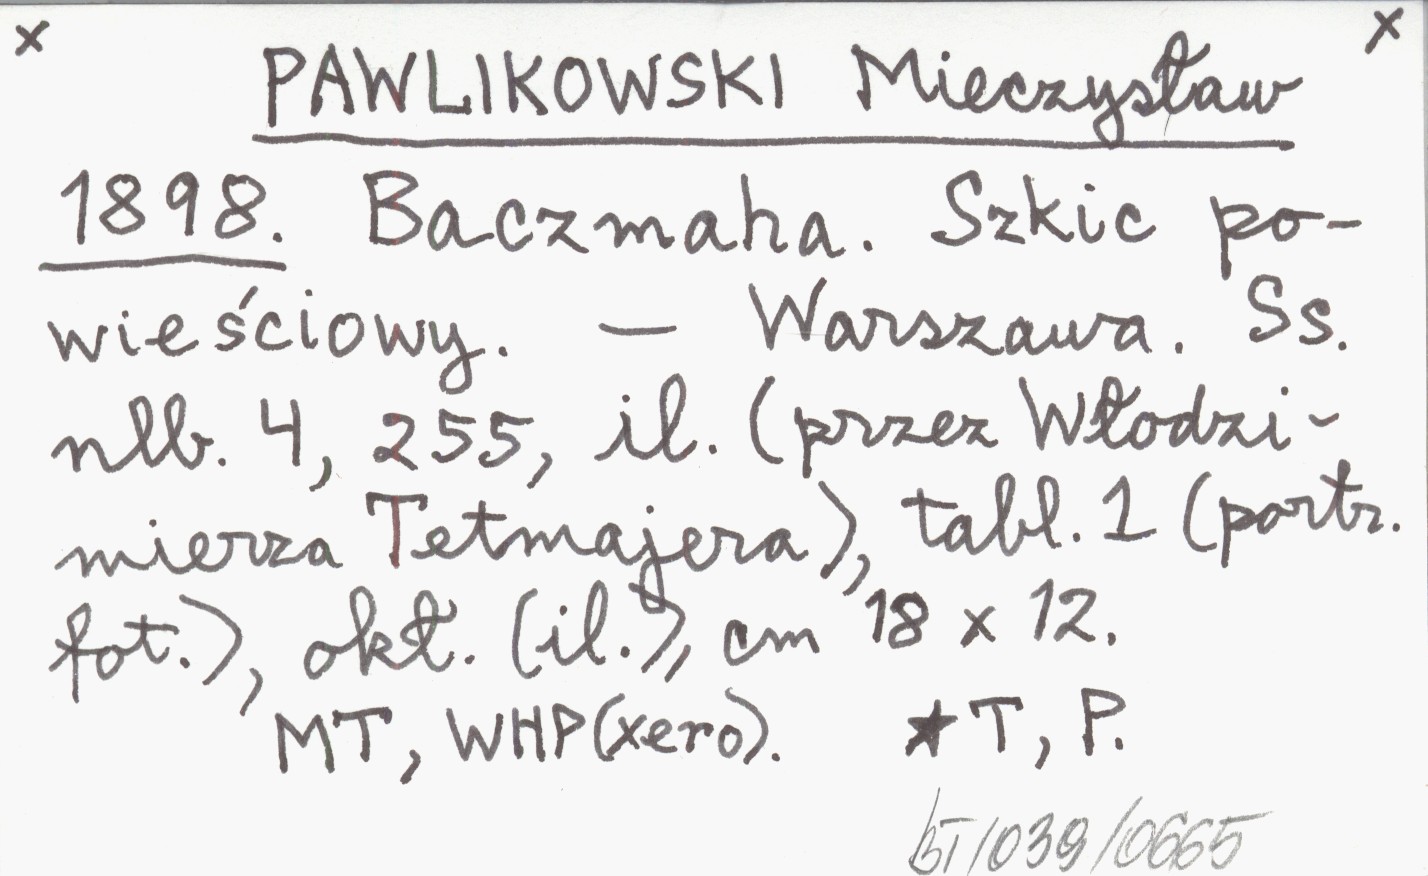 x x
PAWLIKOWSKI Mieczysław
1898. Baczmaha. Szkic po-
wieściowy. — Warszawa. Ss.
nlb. 4, 255, il. (przez Włodzi-
mierza Tetmajera), tabl. 1 (portr.
fot.), okł. (il.), cm 18 x 12.
MT, WHP (xero). ★ T, P.
BT/039/0665